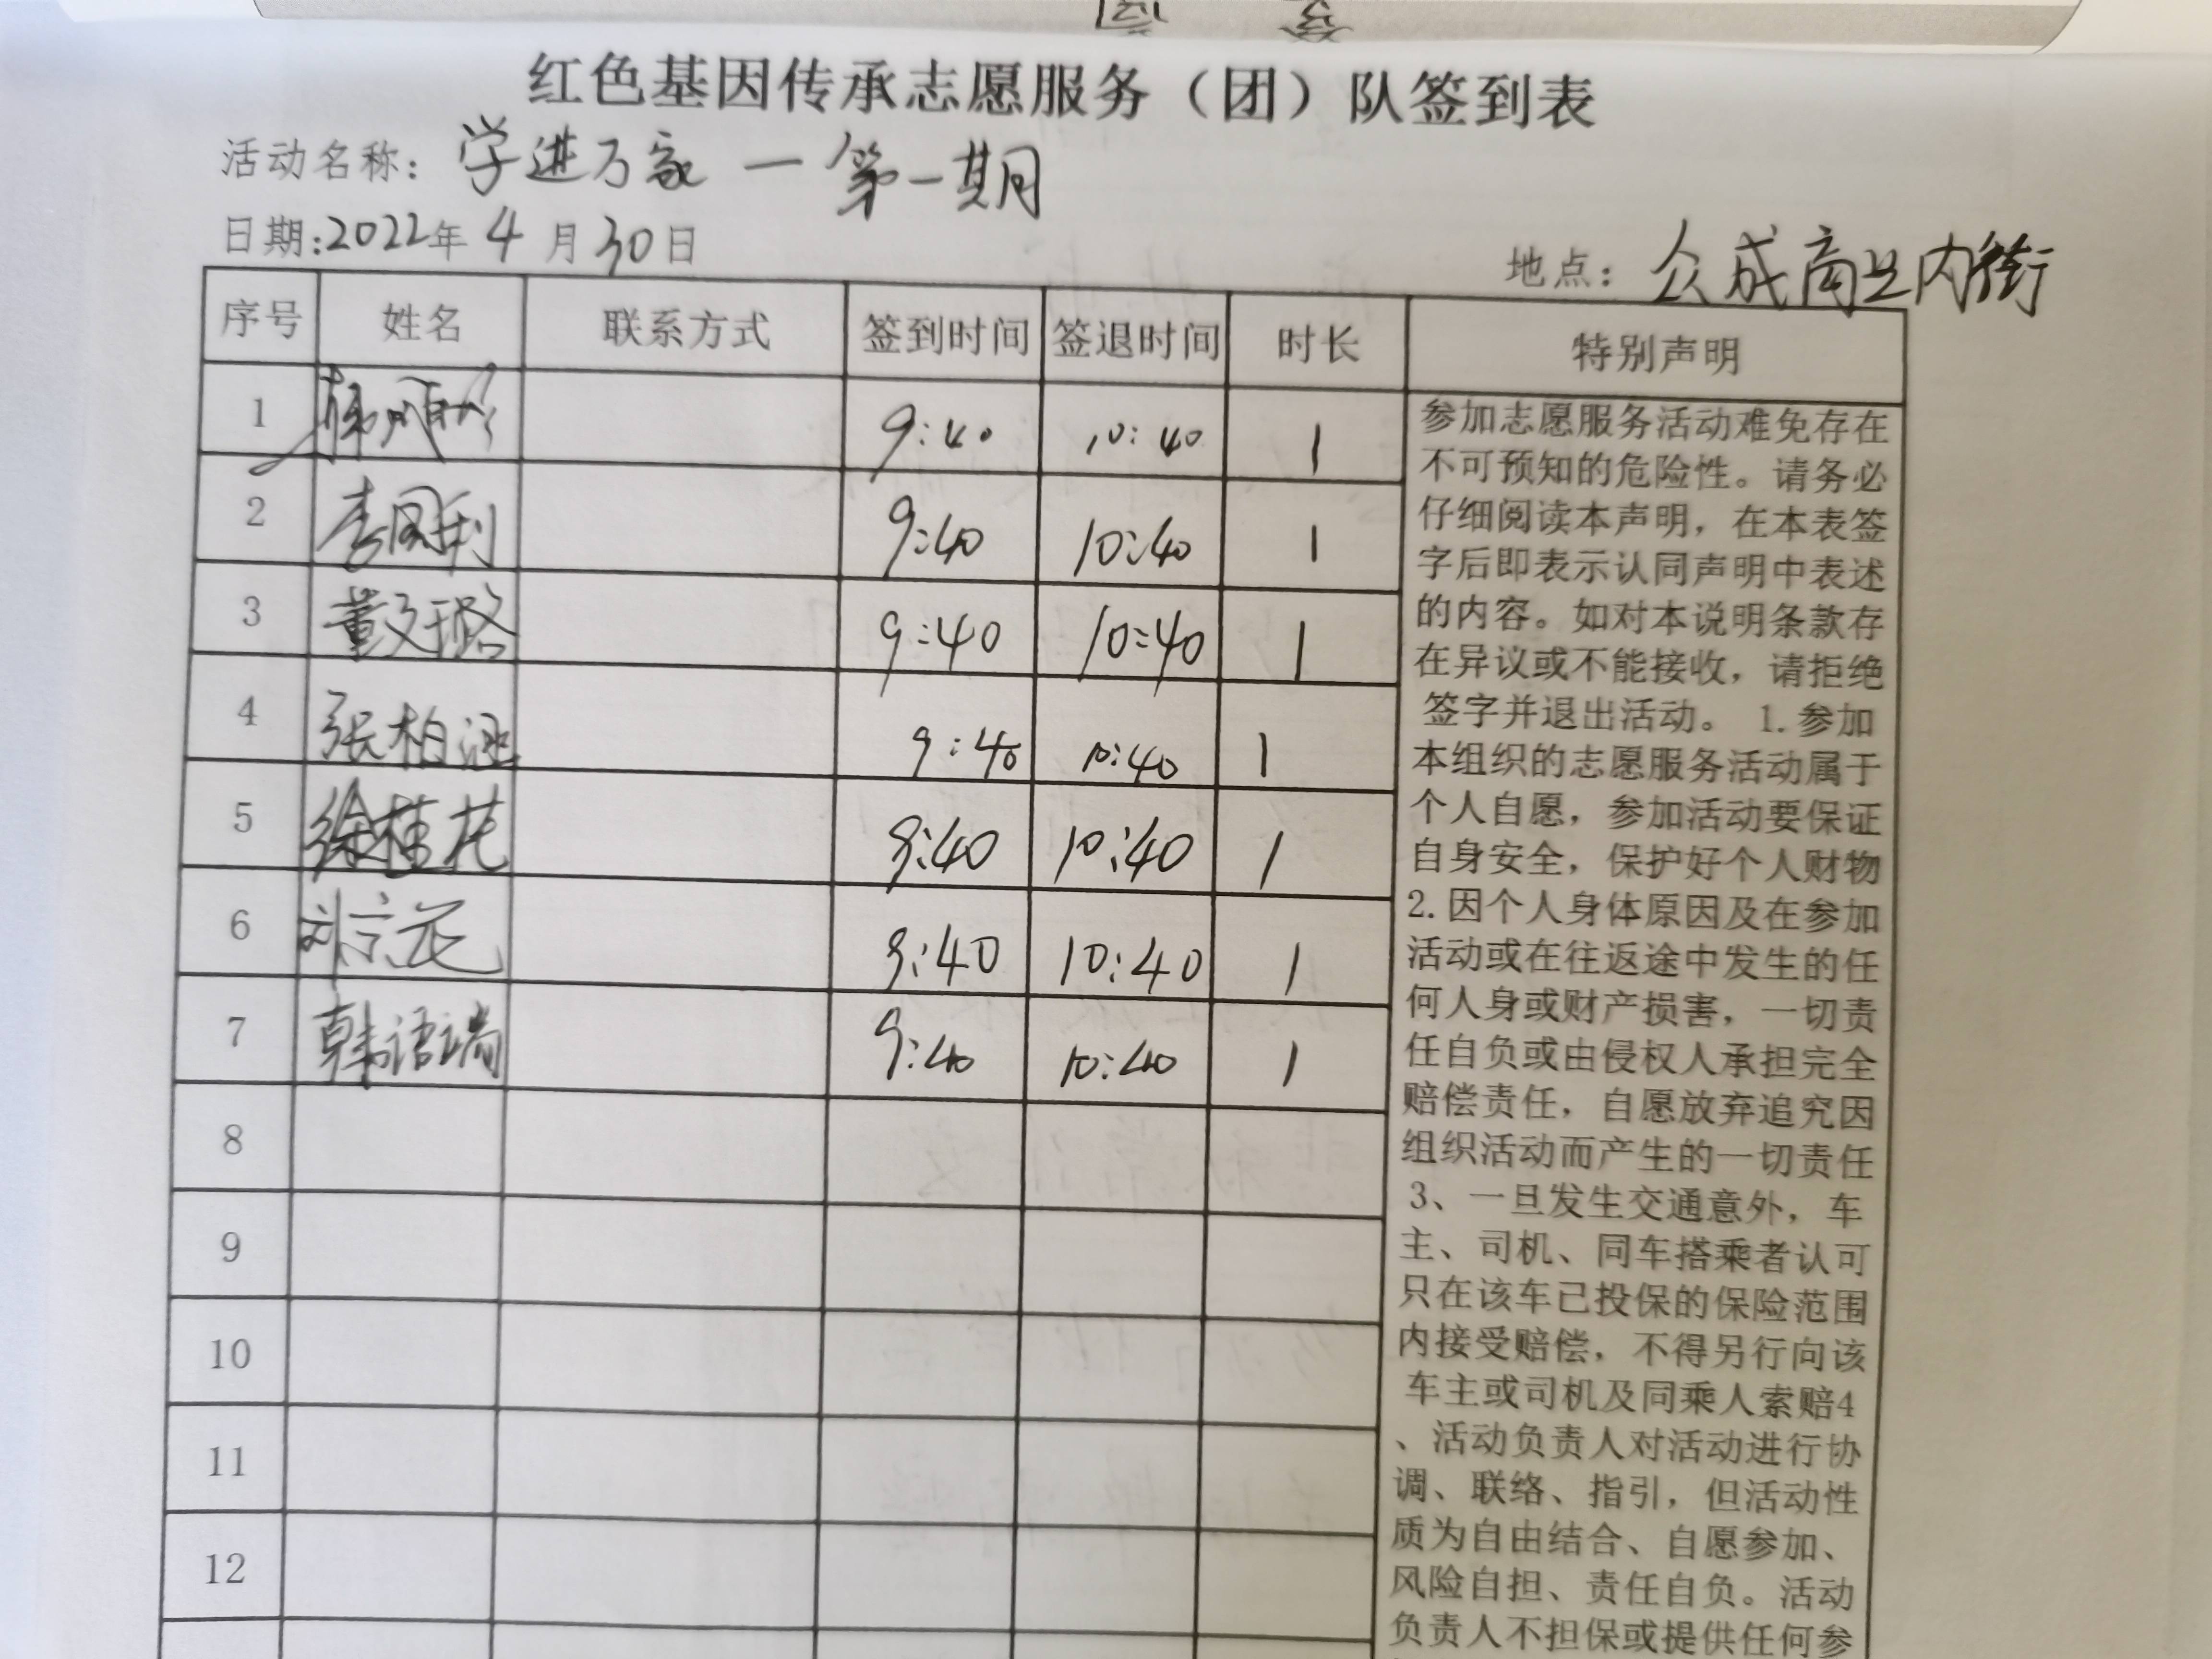 红色基因传承志愿服务（团）队签到表
活动名称：学进万家一第一期
日期:2022年4月30日
地点：众成商业内街
序号 姓名 联系方式 签到时间 签退时间 时长 特别声明
1 9:40 10:40 1
2 李凤利 9:40 10:40 1
3 董文璐 9:40 10:40 1
4 张柏涵 9:40 10:40 1
5 徐桂花 9:40 10:40 1
6 刘京花 9:40 10:40 1
7 韩语端 9:40 10:40 1
8
9
10
11
12
参加志愿服务活动难免存在
不可预知的危险性。请务必
仔细阅读本声明，在本表签
字后即表示认同声明中表述
的内容。如对本说明条款存
在异议或不能接收，请拒绝
签字并退出活动。 1.参加
本组织的志愿服务活动属于
个人自愿，参加活动要保证
自身安全，保护好个人财物
2.因个人身体原因及在参加
活动或在往返途中发生的任
何人身或财产损害，一切责
任自负或由侵权人承担完全
赔偿责任，自愿放弃追究因
组织活动而产生的一切责任
3、一旦发生交通意外，车
主、司机、同车搭乘者认可
只在该车已投保的保险范围
内接受赔偿，不得另行向该
车主或司机及同乘人索赔4
、活动负责人对活动进行协
调、联络、指引，但活动性
质为自由结合、自愿参加、
风险自担、责任自负。活动
负责人不担保或提供任何参